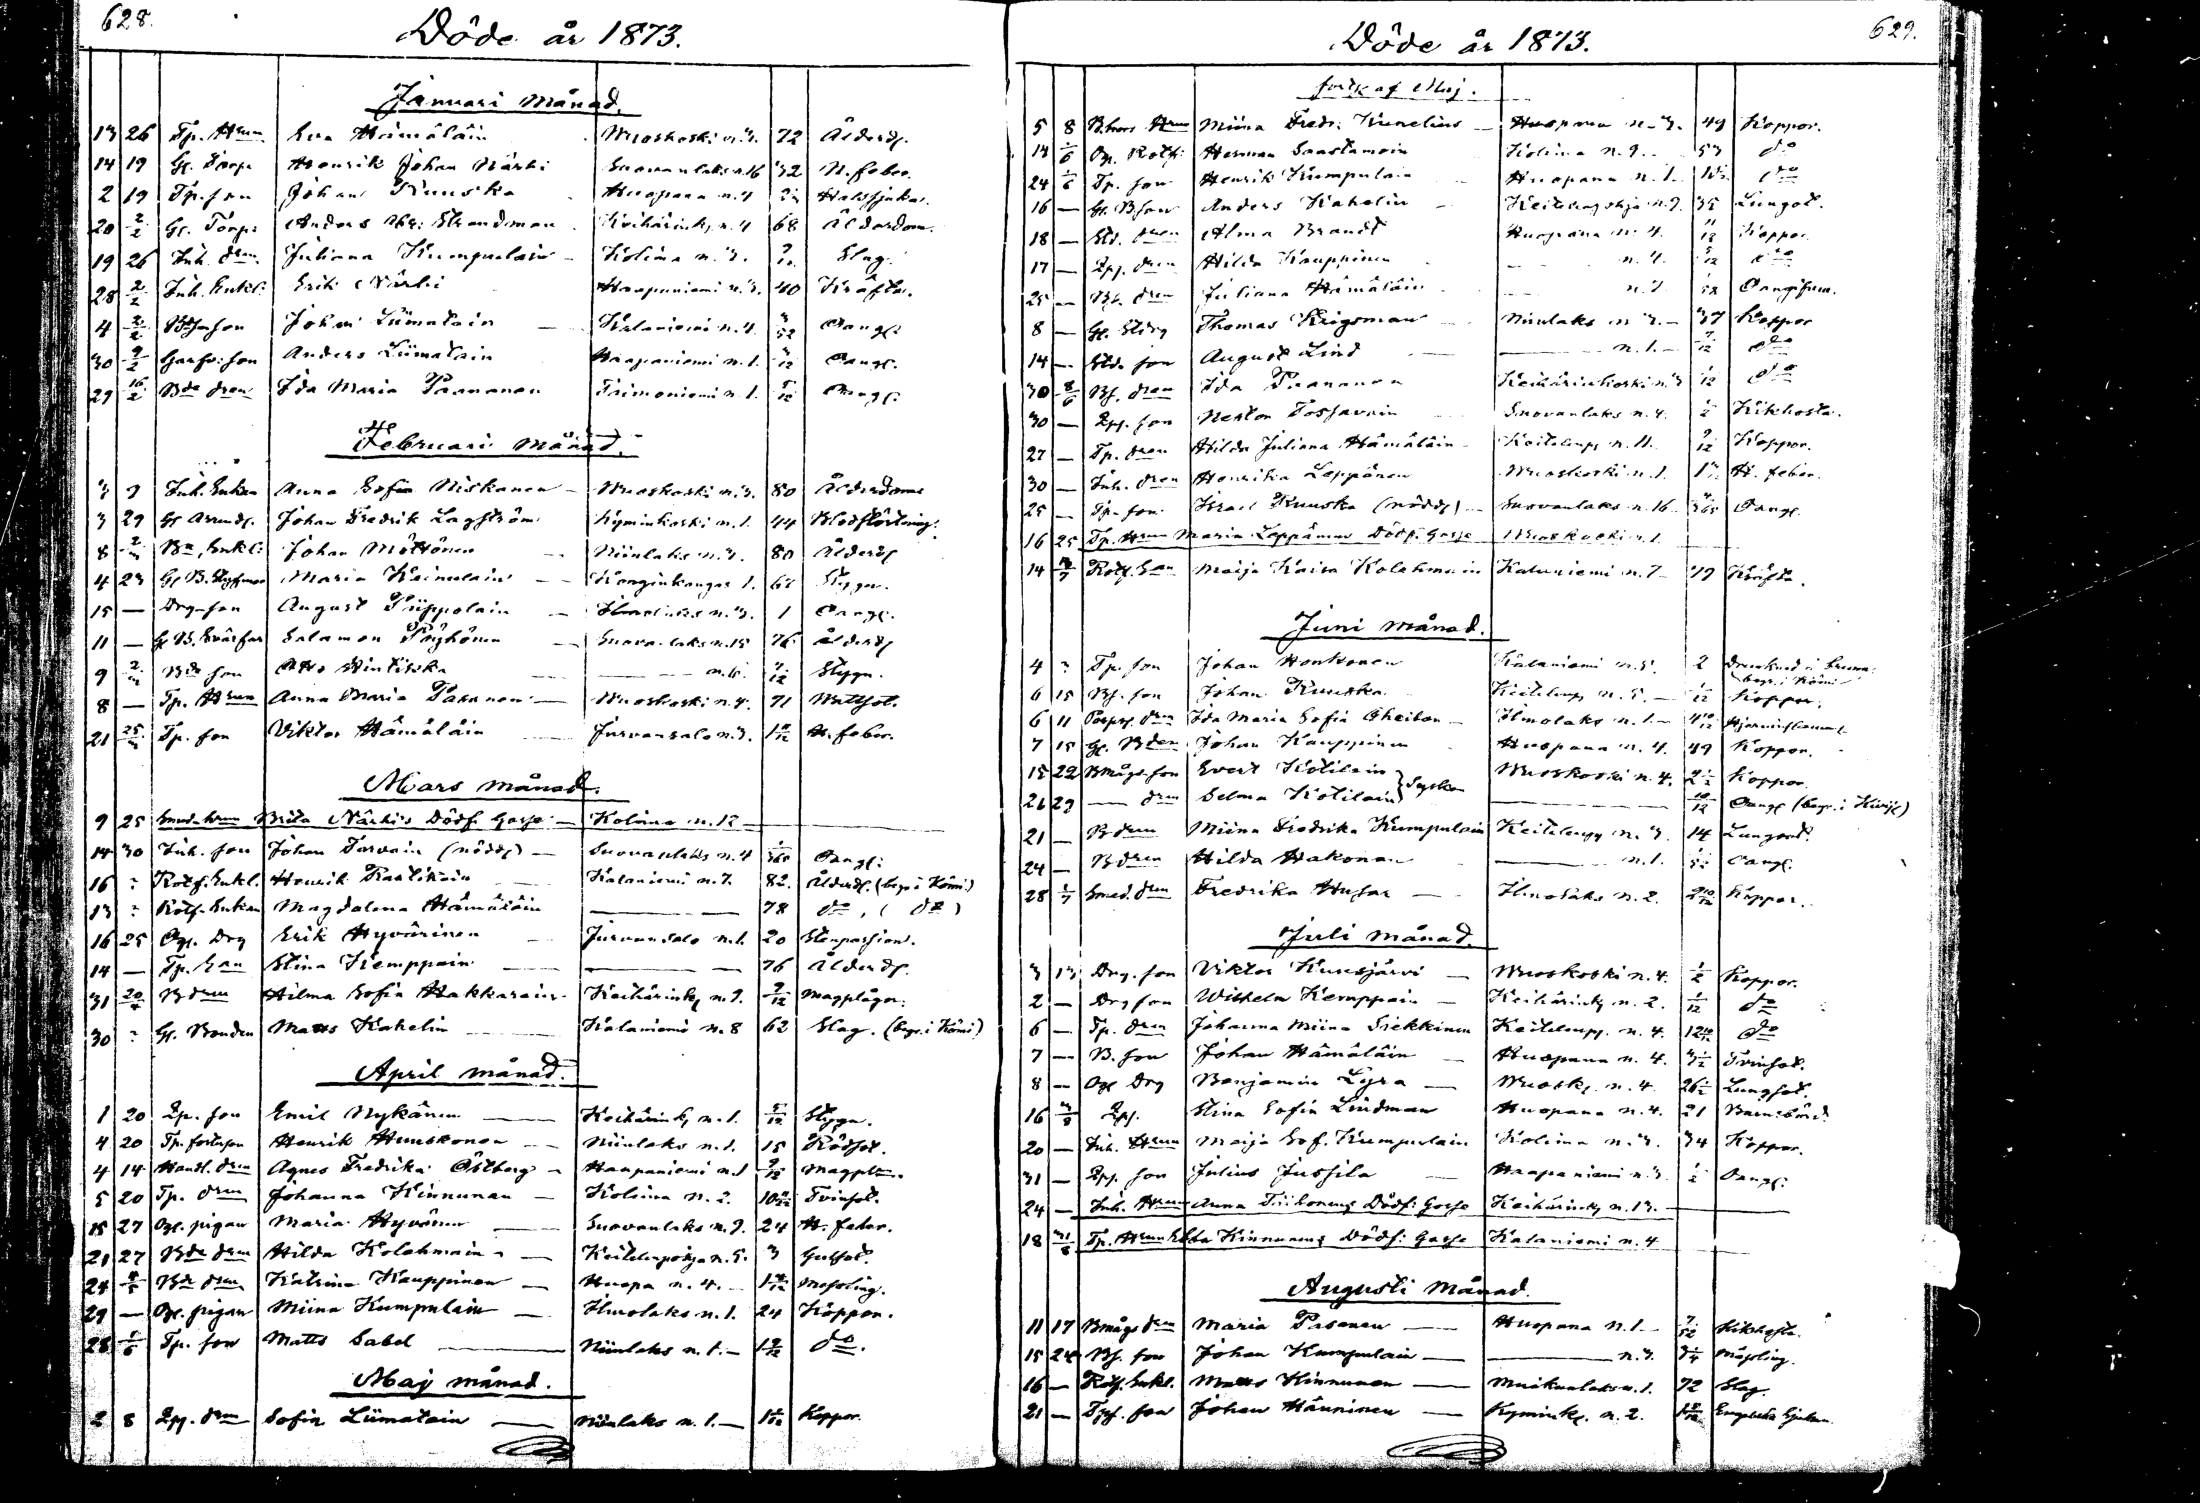 628.
Döde år 1873.
Januari månad.
13 26 Tp. Hrun Eva Hämäläin Muoskoski n. 3. 72 Ålderds.
14 19 Gl. Torp. Henrik Johan Närhi Suovanlaks n. 16 32 N. feber.
2 19 Tp. son Johan Ruuska Huopana n. 4 Halssjuka.
20 2/2 Gl. Torp: Anders Abr: Strandman Keihärink, n. 4 68 Ålderdom.
19 26 Inh. dren Juliana Kumpulain Kolima n. 3. Slag.
28 2/2 Inh. Enkl: Erik Närhi Haapaniemi n. 3. 40 Kräfta.
4 2/2 son Johan Liimatain Kalaniemi n. 4. 3/52 Oangl:
30 9/2 son Anders Liimatain Haapaniemi n. 1. 3/12 Oangl:
29 16/2 Bde dren Ida Maria Paananen Taimoniemi n. 1. 5/12 Oangl:
Februari månad.
3 9 Inh. Enkan Anna Sofia Niskanen Muoskoski n. 3. 80 Ålderdom
3 29 Gl Arrend. Johan Fredrik Lagström Kyminkoski n. 1. 44 Blodstörtning.
8 Bn. Enkl: Johan Möttönen Niinlaks n. 3. 80 Ålderds
4 23 Maria Keinulain Konginkangas 1. 67 Stygn.
15 — Drg-son August Piippolain Ilmolaks n. 3. 1 Oangl:
11 — G. B. Svärfar Salamon Pöyhönen Suovanlaks n. 15 76 Ålderds
9 Bde son Otto Hintikka — n. 6. Stygn.
8 — Tp. Hrun Anna Maria Pasanen Muoskoski n. 4. 71 Wattsot.
21 25/3 Tp. son Viktor Hämäläin Jurvansalo n. 3. H. feber.
Mars månad.
9 25 Smed. hrun Brita Närhi's Dödf. Gosse Kolima n. 12
14 30 Inh. son Johan Tarvain (nödd:) Suovanlaks n. 4 1/365 Oangl:
16 : Rotf. Enkl. Henrik Rautikain Kalaniemi n. 7. 82. Ålderds. (begr. i Kömi)
13 : Rotf. Enkan Magdalena Hämäläin — 78 do, ( do )
16 25 Ogl. Drg Erik Hyvärinen Jurvansalo n. 1. 20 Stenpassion.
14 — Tp. Ean Stina Kemppain — 76 Ålderds.
31 20/4 B dren Hilma Sofia Hakkarain Keihärink, n. 9. 9/12 Magplågor.
30 : Gl. Bonden Matts Kahelin Kalaniemi n. 8 62 Slag. (begr. i Kömi)
April månad.
1 20 Lp. son Emil Nykänen Keihärink, n. 1. 5/12 Stygn.
4 20 Tp. fosterson Henrik Huuskonen Niinlaks n. 1. 15 Rötsot.
4 14 Handl. dren Agnes Fredrika Östberg Haapaniemi n. 1 9/12 Magpl.
5 20 Tp. dren Johanna Kinnunen Kolima n. 2. Tvinsot.
15 27 Ogl. pigan Maria Hyvönen Suovanlaks n. 9. 24 H. feber.
21 27 Bde dren Hilda Kolehmain Keitelepohja n. 5. 3 Gulsot.
24 4/5 Bde dren Katrina Kauppinen Huopa n. 4. Messling.
29 — Ogl. pigan Miina Kumpulain Ilmolaks n. 1. 24 Koppor.
28 1/6 Tp. son Matts Sabel Niinlaks n. 1. do.
Maj månad.
2 8 Lpj. dren Sofia Liimatain Niinlaks n. 1. Koppor.
629.
Döde år 1873.
forts. af Maj.
5 8 Hrun Miina Fredr. Kunelius Huopana n. 3. 49 Koppor.
14 1/6 Og. Rotf: Herman Saastamoin Kolima n. 9. 53 do
24 1/6 Tp. son Henrik Kumpulain Huopana n. 1. do
16 — Gl. B son Anders Kahelin n. 9. 35 Lungot.
18 — Sld. dren Alma Brandt Huopana n. 4. 11/12 Koppor.
17 — Lpj. dren Hilda Kauppinen — n. 4. 5/12 do
25 — Bf. dren Juliana Hämäläin — n. 7 Oangifven.
8 — Gl. Sldrg Thomas Krigsman Niinlaks n. 3. 37 Koppor
14 — Sld. son August Lind — n. 1. 7/12 do
30 8/6 Bf. dren Ida Paananen Keihärinkoski n. 3 1/12 do
30 — Lpj. son Nestor Tossavain Suovanlaks n. 4. 1/2 Kikhosta.
27 — Tp. dren Hilda Juliana Hämäläin Keitelep, n. 11. 9/12 Koppor.
30 — Inh. dren Henrika Leppänen Muoskoski n. 1. H. feber.
25 — Tp. son Israel Ruuska (nödd:) Suovanlaks n. 16. Oangl.
16 25 Tp. Hrun Maria Leppänens Dödf. Gosse Muoskoski n. 1
14 Rotf. Ean Maija Kaisa Kolehmain Kalaniemi n. 7. 79 Kräfta.
Juni månad.
4 : Tp. son Johan Honkonen Kalaniemi n. 5. 2 Drunknad i brunn. begr. i Kömi
6 15 Bf. son Johan Ruuska Keitelep, n. 5. Koppor.
6 11 dren Ida Maria Sofia Gheitan Ilmolaks n. 1. Hjerninflammat.
7 15 Gl. Bden Johan Kauppinen Huopana n. 4. 49 Koppor.
15 22 Bmågs son Evert Kotilain } Syskon Muoskoski n. 4. 2 1/2 Koppor.
26 29 — dren Selma Kotilain — 10/12 Oangl (begr. i Kivij.)
21 — B dren Miina Fredrika Kumpulain Keitelepp, n. 3. 14 Lungsot.
24 — B dren Hilda Hakonen — n. 1. Oangl.
28 1/7 Smed. dren Fredrika Husar Ilmolaks n. 2. Koppor.
Juli månad.
3 13 Drg. son Viktor Kuusjärvi Muoskoski n. 4. 1/2 Koppor.
2 — Drg son Wilhelm Kemppain Keihärink, n. 2. 1/12 do
6 — Tp. dren Johanna Miina Siekkinen Keitelepp. n. 4. do
7 — B. son Johan Hämäläin Huopana n. 4. Tvinsot.
8 — Ogl Drg Benjamin Lyra Muosk, n. 4. 26 1/2 Lungsot.
16 3/8 Lpj. Stina Sofia Lindman Huopana n. 4. 21 Barnsbörd
20 — Inh. Hrun Maija Sof. Kumpulain Kolima n. 3. 34 Koppor.
31 — Lpj. son Julius Jussila Haapaniemi n. 3. 1/2 Oangl:
24 — Inh. Hrun Anna Tiihonens Dödf: Gosse Keihärink, n. 13.
18 31/8 Tp. Hrun Ebba Kinnunens Dödf: Gosse Kalaniemi n. 4
Augusti månad.
11 17 Bmågs dren Maria Pasanen Huopana n. 1. 7/52 Kikhosta.
15 24 Bf. son Johan Kumpulain — n. 3. Mässling.
16 — Rotf. Enkl. Matts Kinnunen Muikunlaks n. 1. 72 Slag.
21 — son Johan Hänninen Kymink,. n. 2. Engelska Sjukan.